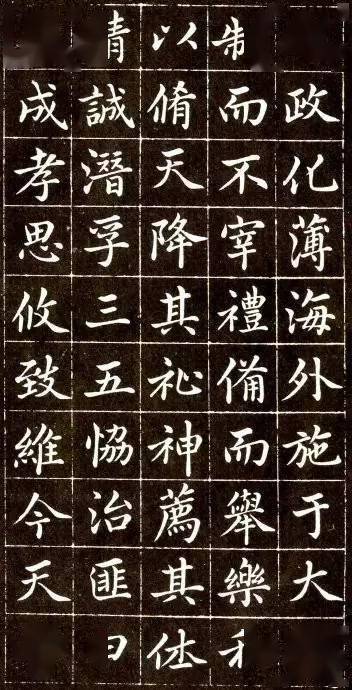 政化薄海外施于大
而不宰禮備而舉樂
以脩天降其祉神薦其休
誠潛孚三五恊治匪
成孝思攸致維今天